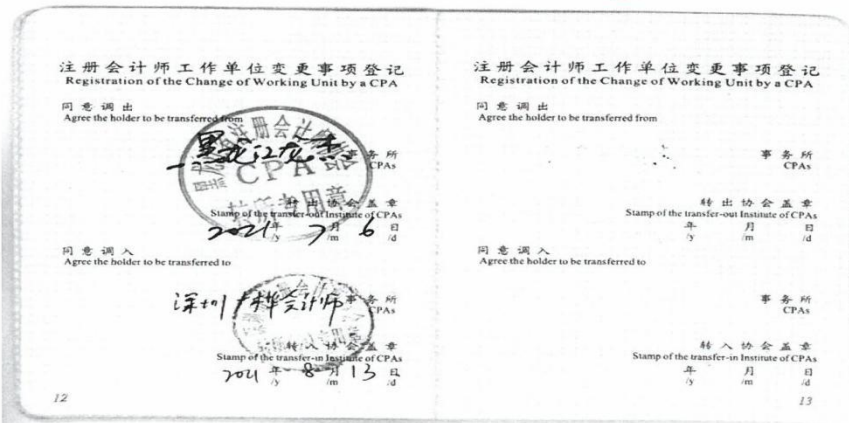 注册会计师工作单位变更事项登记
Registration of the Change of Working Unit by a CPA
同意调出
Agree the holder to be transferred from
黑龙江龙杰
事务所
CPAs
CPA
转所专用章
转出协会盖章
Stamp of the transfer-out Institute of CPAs
2021年 7月 6日
/y /m /d
同意调入
Agree the holder to be transferred to
深圳 会计师事务所
CPAs
转入协会盖章
Stamp of the transfer-in Institute of CPAs
2021年 8月 13日
/y /m /d
12
注册会计师工作单位变更事项登记
Registration of the Change of Working Unit by a CPA
同意调出
Agree the holder to be transferred from
事务所
CPAs
转出协会盖章
Stamp of the transfer-out Institute of CPAs
年 月 日
/y /m /d
同意调入
Agree the holder to be transferred to
事务所
CPAs
转入协会盖章
Stamp of the transfer-in Institute of CPAs
年 月 日
/y /m /d
13